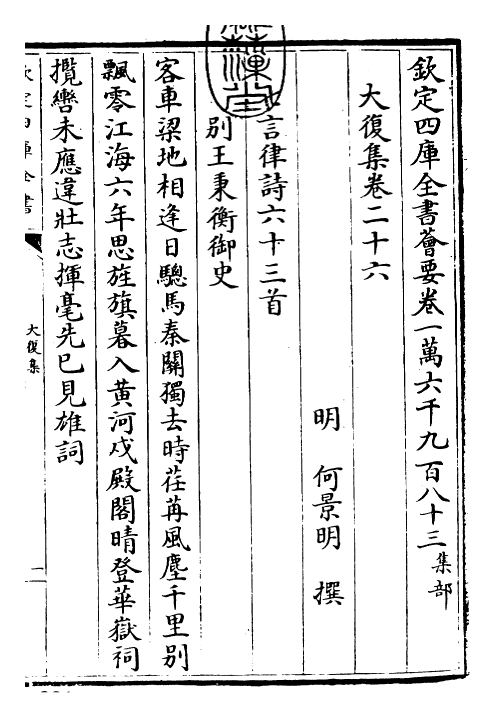 欽定四庫全書薈要卷一萬六千九百八十三集部
大復集卷二十六
明 何景明 撰
言律詩六十三首
別王秉衡御史
客車梁地相逢日驄馬秦關獨去時荏苒風塵千里別
飄零江海六年思旌旗暮入黄河戍殿閣晴登華嶽祠
攬轡未應違壯志揮毫先已見雄詞
欽定四庫全書
大復集